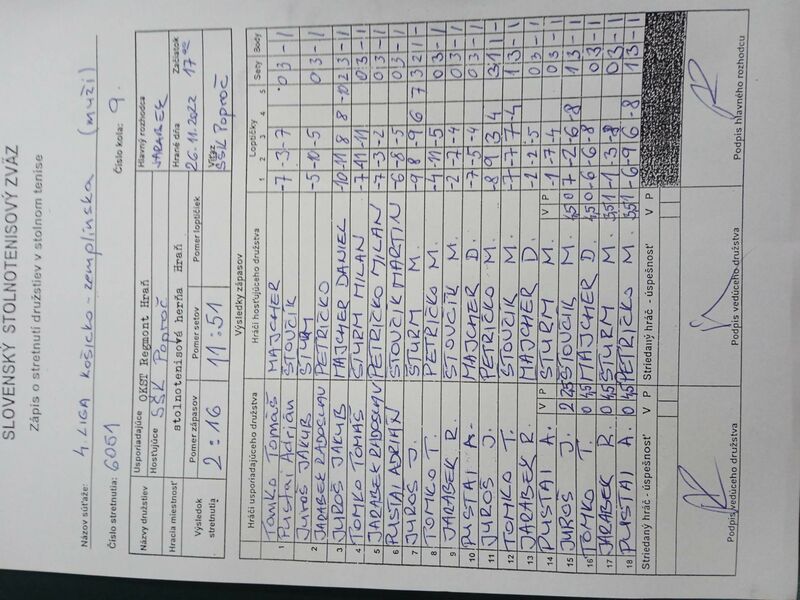 SLOVENSKÝ STOLNOTENISOVÝ ZVÄZ
Zápis o stretnutí družstiev v stolnom tenise
Názov súťaže: 4. LIGA košicko-zemplínska (muži)
Číslo stretnutia: 6051 Číslo kola: 9.
Názvy družstiev Usporiadajúce OKST Regmont Hraň Hlavný rozhodca JARABEK
Hosťujúce SŠK Poproč
Hracia miestnosť stolnotenisová herňa Hraň Hrané dňa 26.11.2022 Začiatok 17 00
Výsledok stretnutia Pomer zápasov 2:16 Pomer setov 11:51 Pomer loptičiek Víťaz SŠK Poproč
Výsledky zápasov
Hráči usporiadajúceho družstva Hráči hosťujúceho družstva Loptičky Sety Body
1 2 3 4 5
1 TOMKO TOMÁŠ MAJCHER -7 -3 -7 0 3 -1
Pustai Adrián ŠTOVČÍK
2 JUROŠ JAKUB ŠTURM -5 -10 -5 0 3 -1
JARABEK RADOSLAV PETRIČKO
3 JUROŠ JAKUB MAJCHER DANIEL -10 -11 8 8 -10 2 3 -1
4 TOMKO TOMÁŠ ŠTURM MILAN -7 -11 -11 0 3 -1
5 JARABEK RADOSLAV PETRIČKO MILAN -7 -3 -2 0 3 -1
6 PUSTAI ADRIÁN ŠTOVČÍK MARTIN -6 -8 -5 0 3 -1
7 JUROŠ J. ŠTURM M. -9 8 -9 6 7 3 2 1 -
8 TOMKO T. PETRIČKO M. -4 -11 -5 0 3 -1
9 JARABEK R. ŠTOVČÍK M. -2 -7 -4 0 3 -1
10 PUSTAI A. MAJCHER D. -7 -5 -4 0 3 -1
11 JUROŠ J. PETRIČKO M. -8 9 3 4 3 1 1 -
12 TOMKO T. ŠTOVČÍK M. -7 -7 7 -4 1 3 -1
13 JARABEK R. MAJCHER D. -2 -2 -5 0 3 -1
14 PUSTAI A. V P ŠTURM M. V P -1 -7 -4 0 3 -1
15 JUROŠ J. ŠTOVČÍK M. 7 -2 -6 -8 1 3 -1
16 TOMKO T. MAJCHER D. -6 -6 -8 0 3 -1
17 JARABEK R. ŠTURM M. -1 -3 -8 0 3 -1
18 PUSTAI A. PETRIČKO M. -6 -9 6 -8 1 3 -1
Striedaný hráč - úspešnosť V P Striedaný hráč - úspešnosť V P
Podpis vedúceho družstva Podpis vedúceho družstva Podpis hlavného rozhodcu